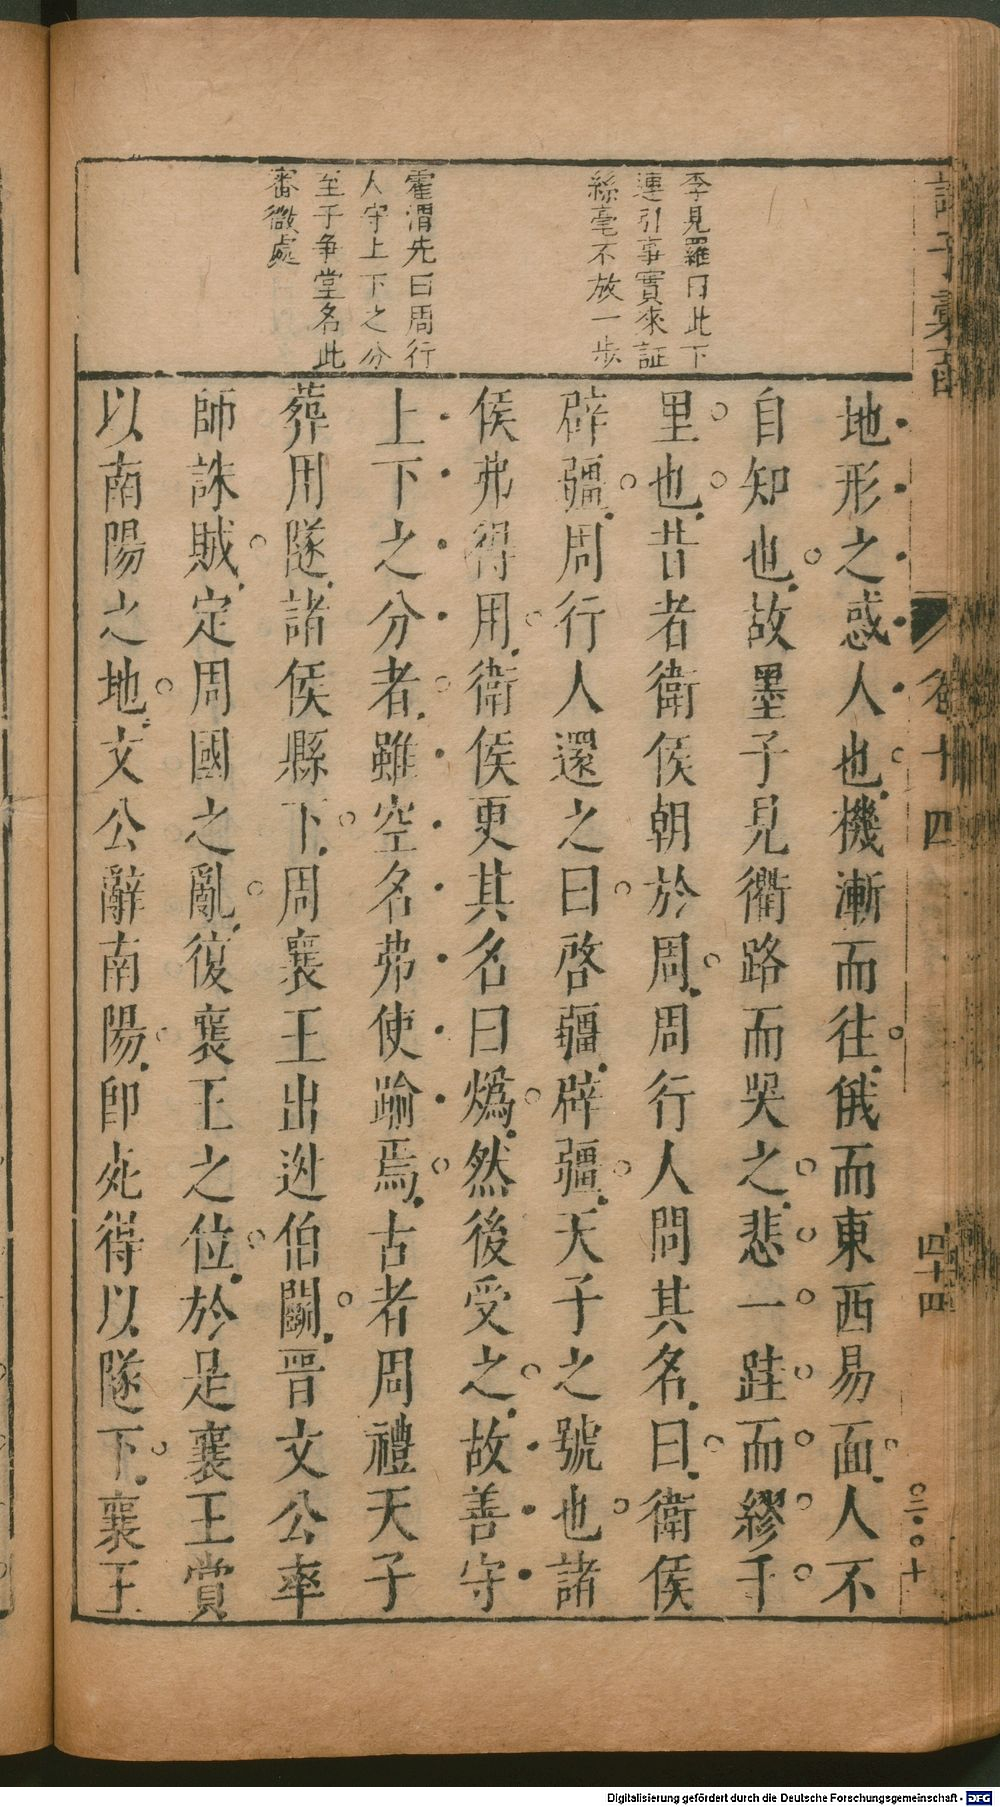 季見羅曰此下
連引事實來証
絲毫不放一步
霍渭先曰周行
人守上下之分
至于争堂名此
審微處
地形之惑人也機漸而往俄而東西易面人不
自知也故墨子見衢路而哭之悲一跬而繆千
里也昔者衛侯朝於周周行人問其名曰衛侯
辟疆周行人還之曰啓疆辟疆天子之號也諸
侯弗得用衛侯更其名曰燬然後受之故善守
上下之分者雖空名弗使踰焉古者周禮天子
葬用隧諸侯縣下周襄王出迯伯鬭晋文公率
師誅賊定周國之亂復襄王之位於是襄王賞
以南陽之地文公辭南陽即死得以隧下襄王
卷十四
四十四
Digitalisierung gefördert durch die Deutsche Forschungsgemeinschaft - DFG